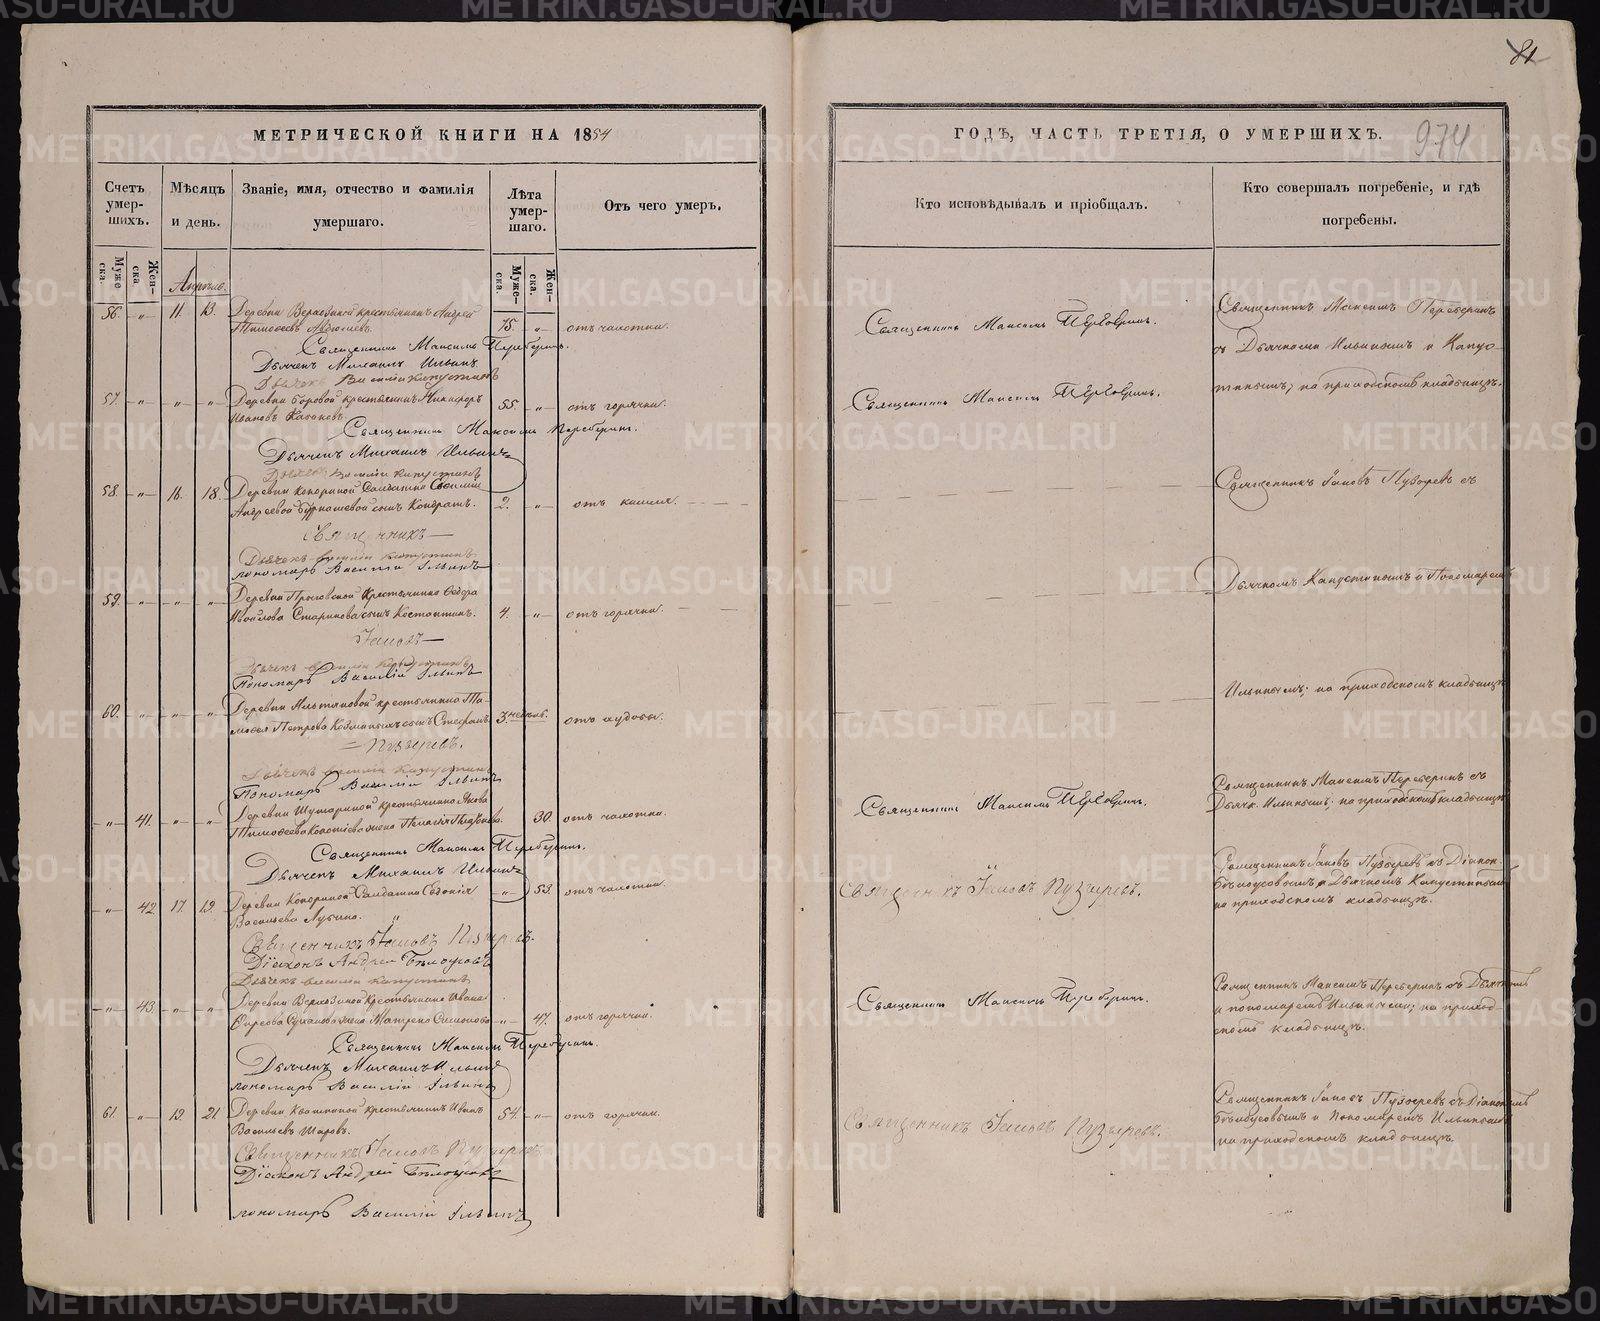 81
МЕТРИЧЕСКОЙ КНИГИ НА 1854
ГОДЪ, ЧАСТЬ ТРЕТІЯ, О УМЕРШИХЪ.
974
Счетъ умер-шихъ.
Мѣсяцъ и день.
Званіе, имя, отчество и фамилія умершаго.
Лѣта умер-шаго.
Отъ чего умеръ.
Кто исповѣдывалъ и пріобщалъ.
Кто совершалъ погребеніе, и гдѣ погребены.
Муже-ска.
Жен-ска
Муже-ска.
Жен-ска.
Апрѣль.
56. „ 11. 13. Деревни крестьянинъ Андрей
Тимофеевъ 75. „ отъ чахотки.
Священникъ Максимъ Переберинъ.
Дьячекъ Михаилъ Ильинъ
Дьячекъ Василій Капустинъ
Священникъ Максимъ Переберинъ.
Священникъ Максимъ Переберинъ
съ Дьячками Ильинымъ и Капус-
тинымъ; на приходскомъ кладбищѣ.
57. „ „ „ Деревни Боровой крестьянинъ Никифоръ
Ивановъ Казаковъ. 55. „ отъ горячки.
Священникъ Максимъ Переберинъ.
Дьячекъ Михаилъ Ильинъ
Дьячекъ Василій Капустинъ
Священникъ Максимъ Переберинъ.
58. „ 16. 18. Деревни Солдатки
Андреевой сынъ Кондратъ. 2. „ отъ кашля.
Священникъ
Дьячекъ Василій Капустинъ
пономарь Василій Ильинъ
Священникъ Іаковъ Пузыревъ съ
59. „ „ „ Деревни крестьянина Федора
сынъ Костантинъ. 4. „ отъ горячки.
Іаковъ
Дьячекъ Василій Капустинъ
Пономарь Василій Ильинъ
Дьячкомъ Капустинымъ и Пономаремъ
60. „ „ „ Деревни крестьянина
Петрова сынъ Стефанъ. 3. отъ худобы.
Пузыревъ.
Дьячекъ Василій Капустинъ
Пономарь Василій Ильинъ
Ильинымъ; на приходскомъ кладбищѣ
„ 41. „ „ Деревни крестьянина Якова
Тимофеева жена Пелагія 30. отъ чахотки.
Священникъ Максимъ Переберинъ.
Дьячекъ Михаилъ Ильинъ
Священникъ Максимъ Переберинъ.
Священникъ Максимъ Переберинъ съ
Дьячк. Ильинымъ; на приходскомъ кладбищѣ
„ 42. 17. 19. Деревни Солдатка
Васильева „ 53. отъ чахотки.
Священникъ Іаковъ Пузыревъ.
Діаконъ Андрей Бѣлоусовъ
Дьячекъ Василій Капустинъ
Священникъ Іаковъ Пузыревъ.
Священникъ Іаковъ Пузыревъ съ Діакон.
Бѣлоусовымъ и Дьячкомъ Капустинымъ
на приходскомъ кладбищѣ.
„ 43. „ „ Деревни крестьянина Ивана
жена Матрена „ 47. отъ горячки.
Священникъ Максимъ Переберинъ.
Дьячекъ Михаилъ Ильинъ
пономарь Василій Ильинъ
Священникъ Максимъ Переберинъ.
Священникъ Максимъ Переберинъ съ Дьячкомъ
и пономаремъ Ильиными; на приход-
скомъ кладбищѣ.
61. „ 19. 21. Деревни крестьянинъ Иванъ
Васильевъ Шаровъ. 54. „ отъ горячки.
Священникъ Іаковъ Пузыревъ
Діаконъ Андрей Бѣлоусовъ
пономарь Василій Ильинъ
Священникъ Іаковъ Пузыревъ.
Священникъ Іаковъ Пузыревъ съ Діакономъ
Бѣлоусовымъ и Пономаремъ Ильинымъ
на приходскомъ кладбищѣ.
METRIKI.GASO-URAL.RU